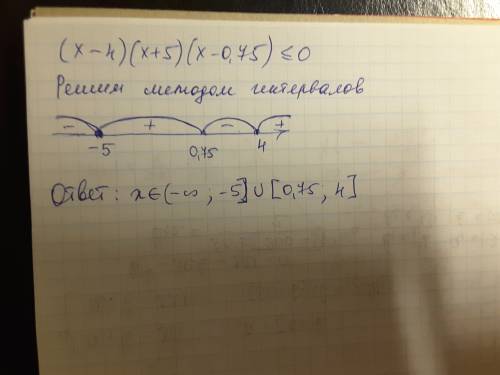 (x-4)(x+5)(x-0,75)≤0
Решим методом интервалов
- + - +
-5 0,75 4
Ответ: x∈(-∞; -5]∪[0,75, 4]